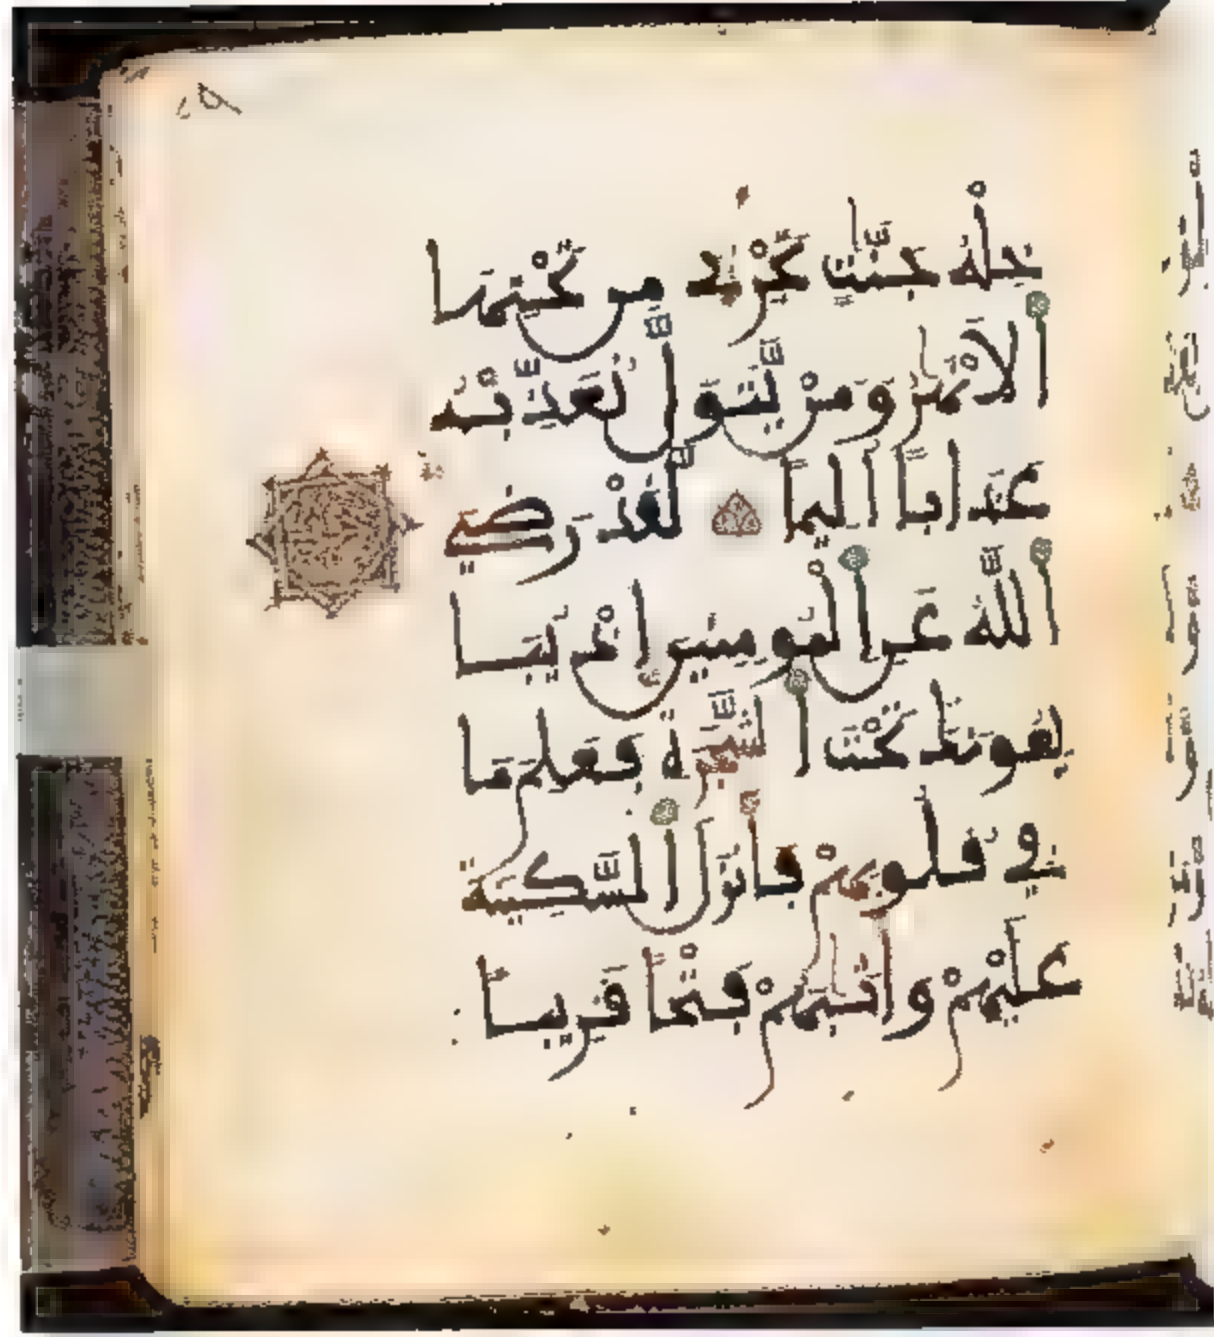 خِلْهُ جَنَّٰتٍ تَجْرِي مِن تَحْتِهَا
اَلَانْهَٰرُ وَمَنْ يَّتَوَلَّ نُعَذِّبْهُ
عَذَاباً اَلِيماً لَّقَدْ رَضِيَ
اَللَّهُ عَنِ اِلْمُومِنِينَ إِذْ يُبَا
يِعُونَكَ تَحْتَ اَلشَّجَرَةِ فَعَلِمَ مَا
فِي قُلُوبِهِمْ فَأَنزَلَ اَلسَّكِينَةَ
عَلَيْهِمْ وَأَثَٰبَهُمْ فَتْحاً قَرِيباً